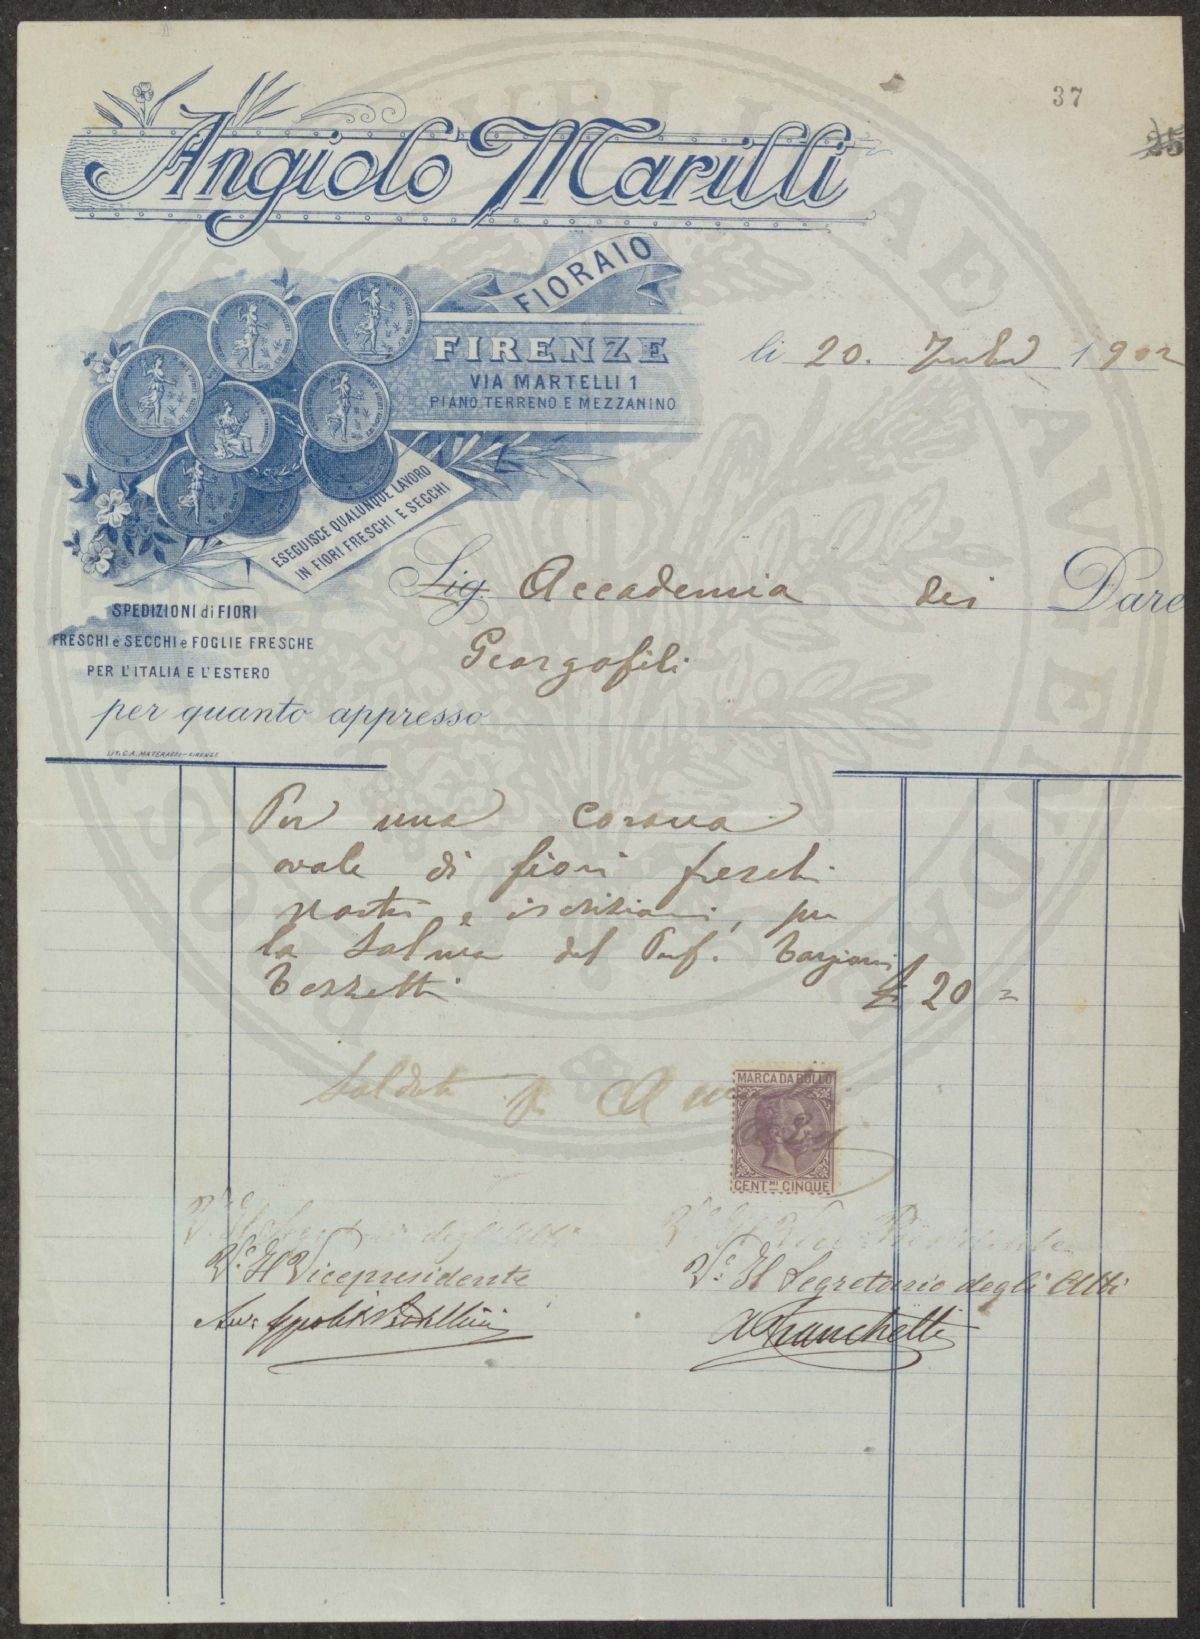 37
25
Angiolo Marilli
FIORAIO
FIRENZE
VIA MARTELLI 1
PIANO TERRENO E MEZZANINO
li 20. 1902
ESEGUISCE QUALUNQUE LAVORO
IN FIORI FRESCHI E SECCHI
Sig. Accademia dei Dare
Georgofili
SPEDIZIONI di FIORI
FRESCHI e SECCHI e FOGLIE FRESCHE
PER L'ITALIA E L'ESTERO
per quanto appresso
LIT. C. A. MATERASSI - FIRENZE
Per una corona
ovale di fiori freschi
nastri e iscrizioni, per
la Salma del Prof. Targioni
Tozzetti £ 20 =
Saldato p.
MARCA DA BOLLO
CENT.MI CINQUE
V.° Il Segretario degli Atti V.° Il Vice Presidente
V.° Il Vicepresidente V.° Il Segretario degli Atti
Franchetti